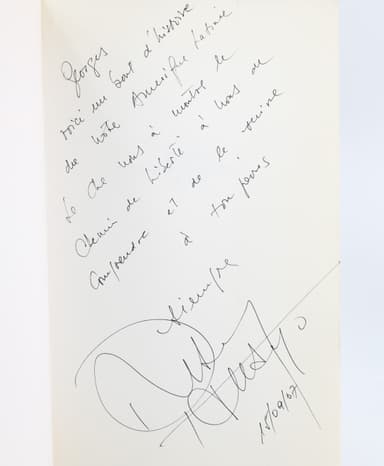 Georges
voici un bout d'histoire
de nôtre Amérique Latine
Le Che nous à montré le
Chemin de Liberté à nous de
Comprendre et de le suivre
à ton pays
siempre
15/09/07